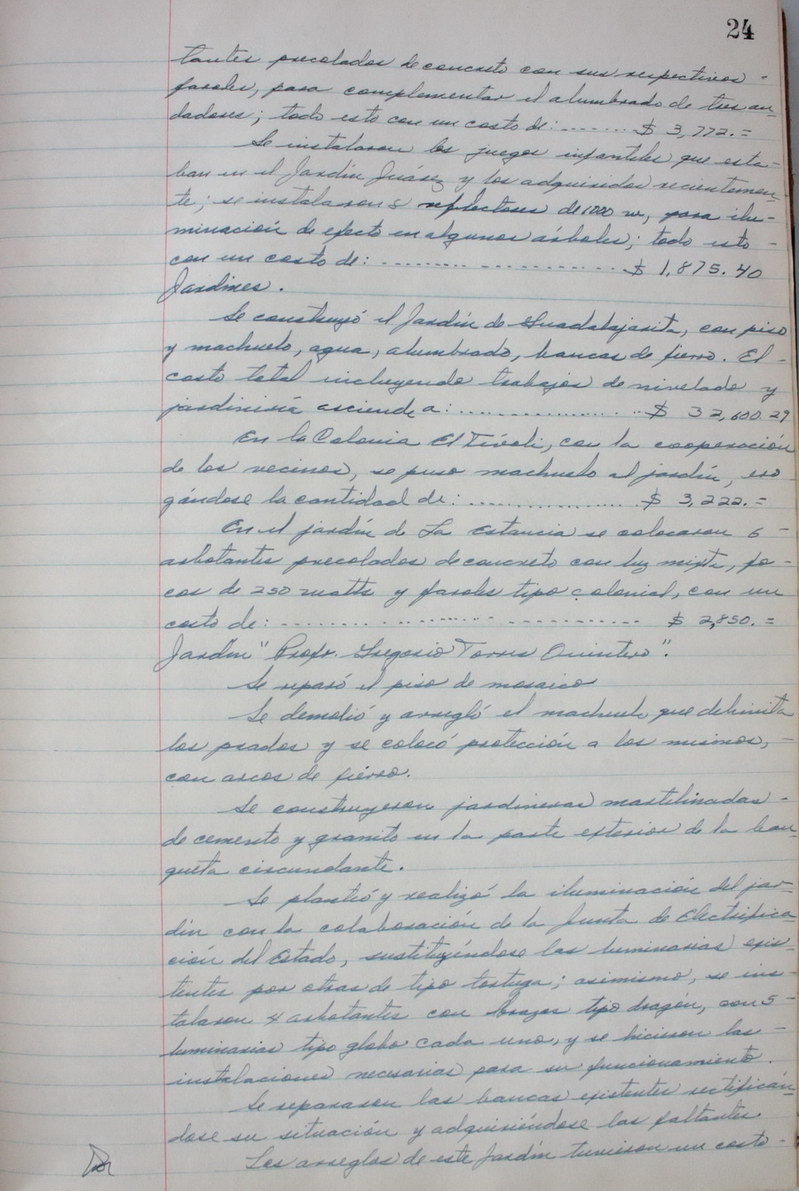 24
tantes precolados de concreto con sus respectivos -
faroles, para complementar el alumbrado de tres an-
dadores; todo esto con un costo de: ........ $ 3,772.=
Se instalaron los juegos infantiles que esta-
ban en el Jardín Juárez y los adquiridos recientemen-
te; se instalaron 5 reflectores de 1000 w, para ilu-
minación de efecto en algunos árboles; todo esto -
con un costo de: ........................ $ 1,875.40
Jardines.
Se construyó el Jardín de Guadalajarita, con piso
y machuelo, agua, alumbrado, bancas de fierro. El -
costo total incluyendo trabajos de nivelado y
jardinería asciende a: .................... $ 32,600.29
En la Colonia El Tívoli, con la cooperación
de los vecinos, se puso machuelo al jardín, ero
gándose la cantidad de: ................... $ 3,222.=
En el jardín de La Estancia se colocaron 6 -
arbotantes precolados de concreto con luz mixta, fo-
cos de 250 watts y faroles tipo colonial, con un
costo de: .............................. $ 2,850.=
Jardín "Profr. Gregorio Torres Quintero".
Se reparó el piso de mosaico
Se demolió y arregló el machuelo que delimita
los prados y se colocó protección a los mismos, -
con arcos de fierro.
Se construyeron jardineras martelinadas -
de cemento y granito en la parte exterior de la ban-
queta circundante.
Se planeó y realizó la iluminación del jar-
dín con la colaboración de la Junta de Electrifica-
ción del Estado, sustituyéndose las luminarias exis-
tentes por otras de tipo tortuga; asimismo, se ins-
talaron 4 arbotantes con brazos tipo dragón, con 5 -
luminarias tipo globo cada uno, y se hicieron las -
instalaciones necesarias para su funcionamiento.
Se repararon las bancas existentes rectificán-
dose su situación y adquiriéndose las faltantes.
Los arreglos de este Jardín tuvieron un costo -